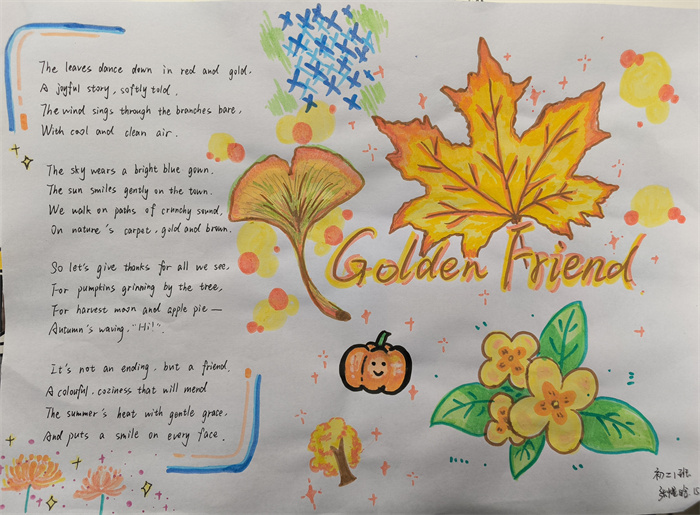 The leaves dance down in red and gold.
A joyful story, softly told.
The wind sings through the branches bare,
With cool and clean air.
The sky wears a bright blue gown.
The sun smiles gently on the town.
We walk on paths of crunchy sound,
On nature's carpet, gold and brown.
So let's give thanks for all we see,
For pumpkins grinning by the tree,
For harvest moon and apple pie—
Autumn's waving, "Hi!".
It's not an ending, but a friend.
A colouful, coziness that will mend
The summer's heat with gentle grace,
And puts a smile on every face.
Golden Friend
初二1班
15